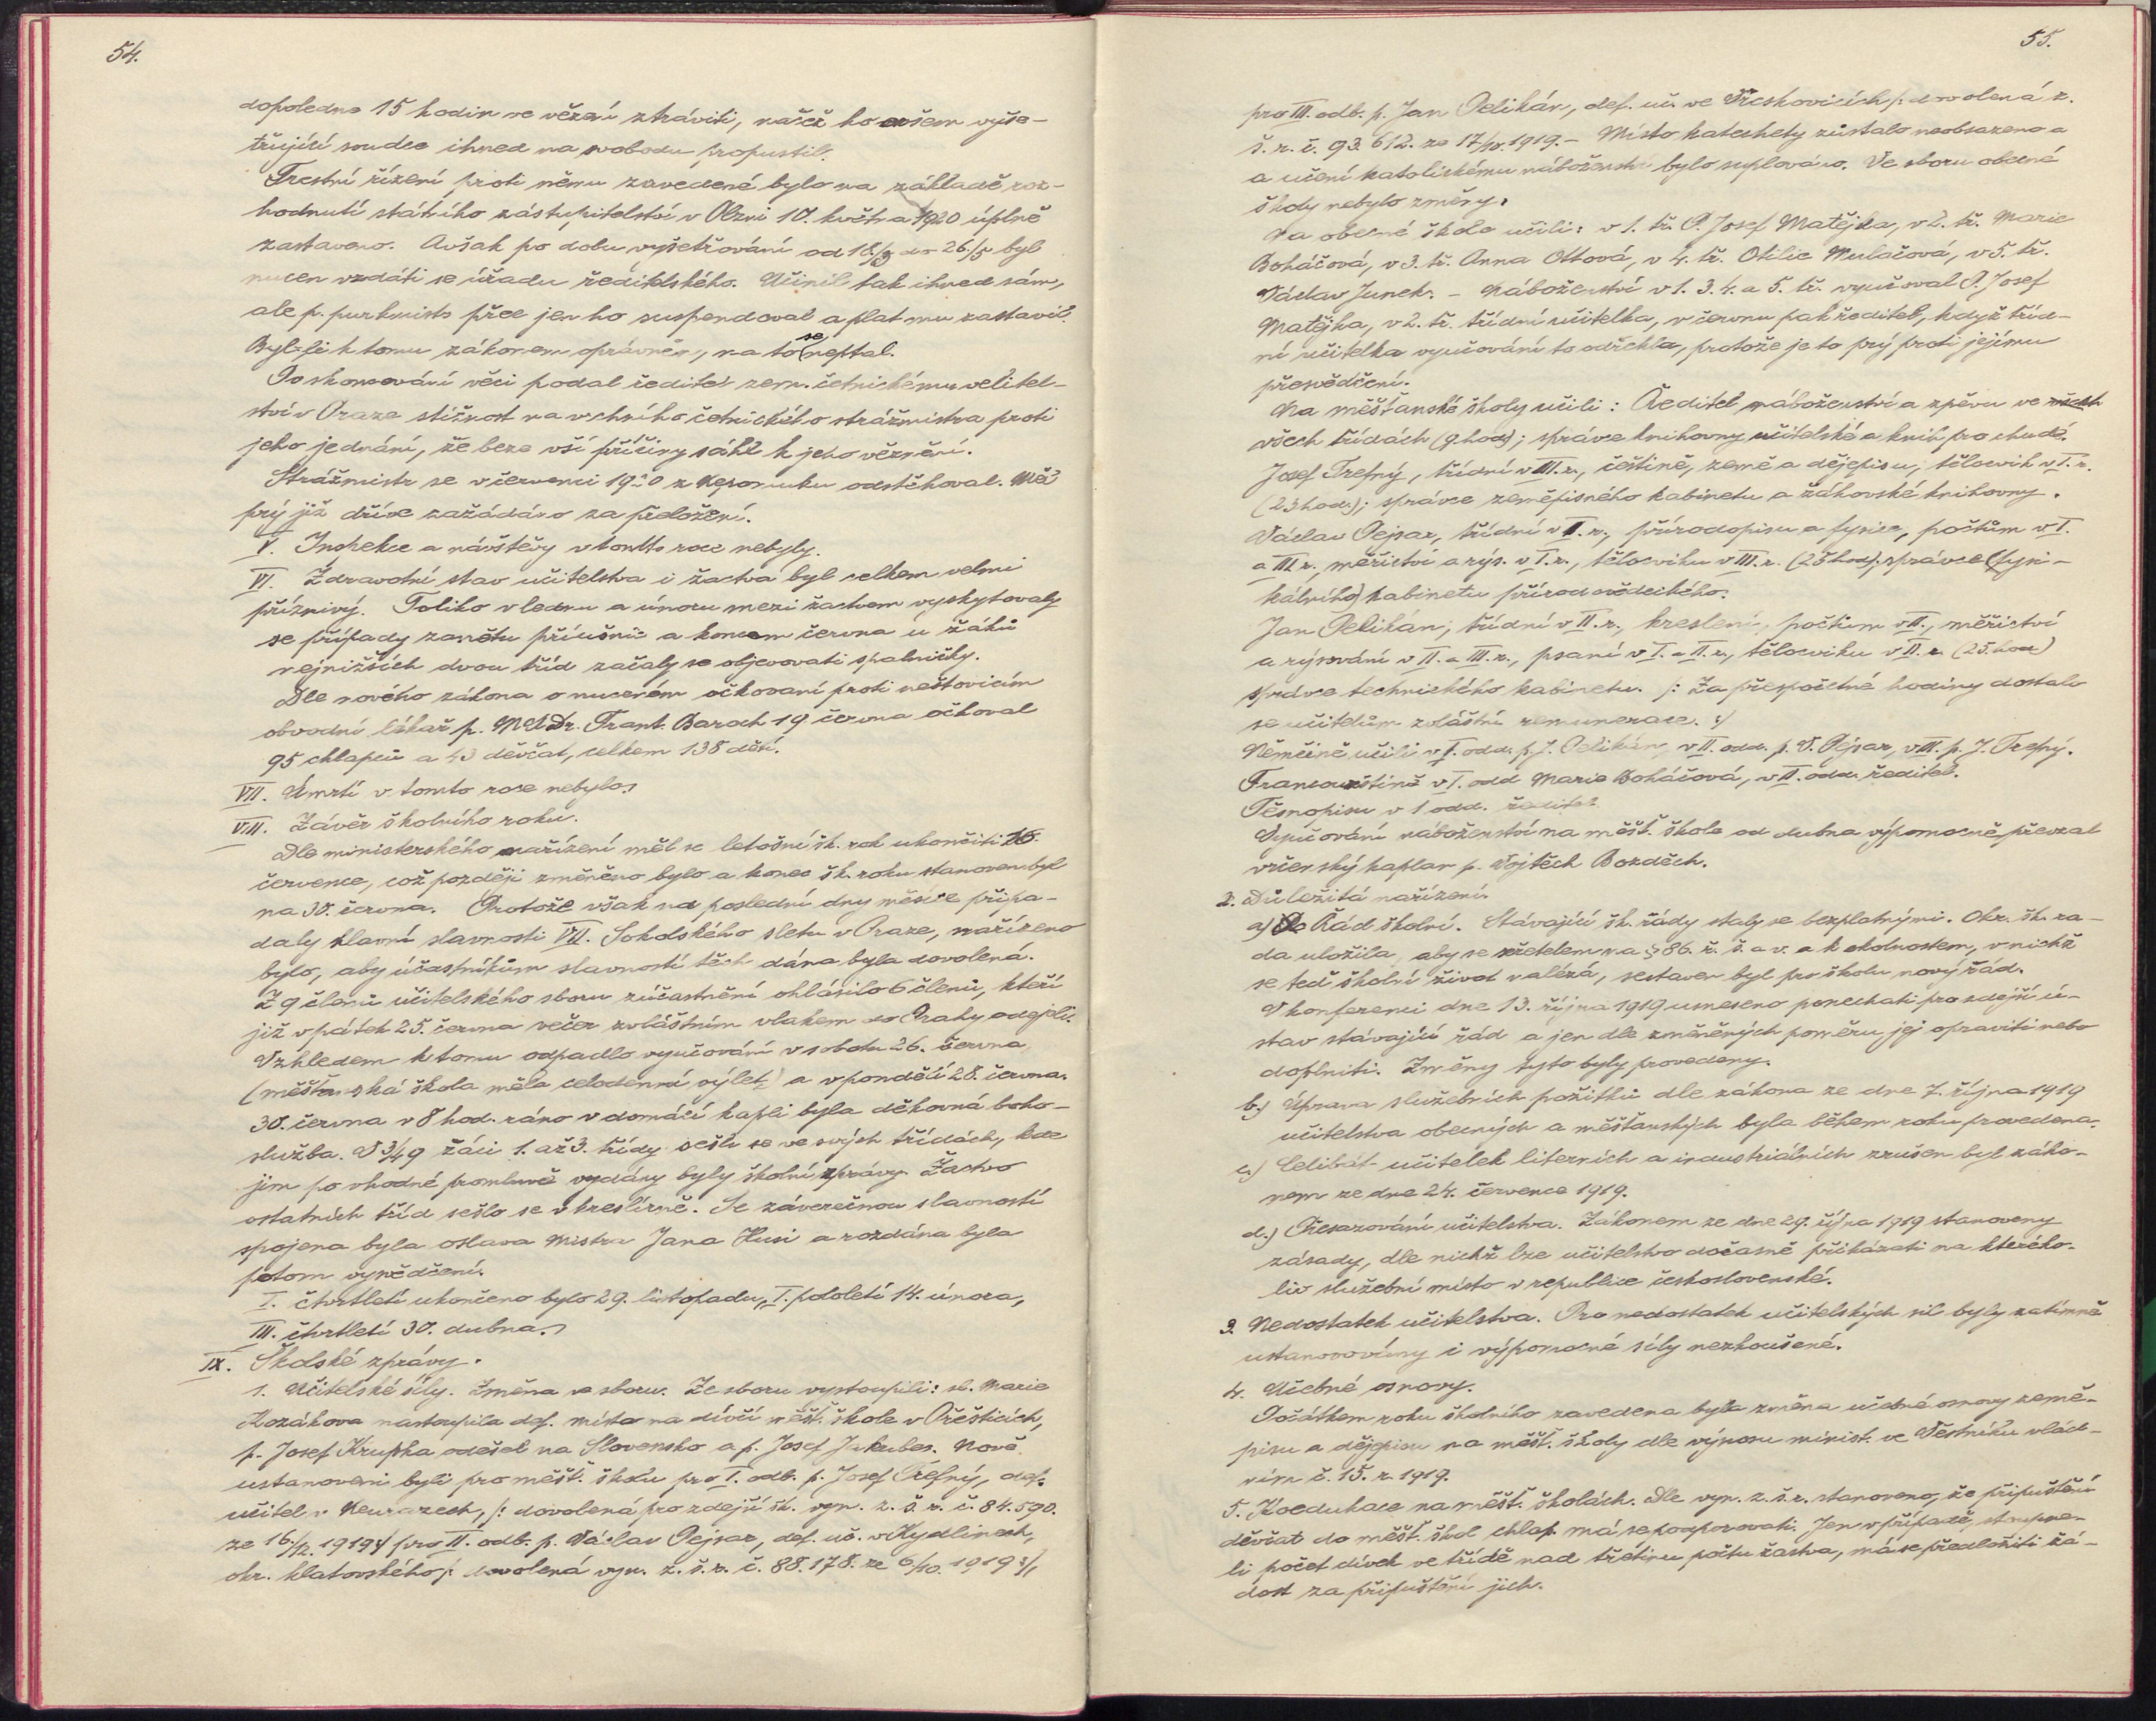 54.
dopoledne 15 hodin ve vězení ztráviti, načež ho ovšem vyše-
třující soudce ihned na svobodu propustil.
Trestní řízení proti němu zavedené bylo na základě roz-
hodnutí státního zástupitelství v Plzni 17. května 1920 úplně
zastaveno. Avšak po dobu vyšetřování od 18./3 do 26./5 byl
nucen vzdáti se úřadu ředitelského. Učinil tak ihned sám,
ale p. purkmistr přece jen ho suspendoval a plat mu zastavil.
Byl-li k tomu zákonem oprávněn, na to se neptal.
Po skoncování věci podal ředitel zem. četnickému velitel-
ství v Praze stížnost na vrchního četnického strážmistra proti
jeho jednání, že beze vší příčiny sáhl k jeho věznění.
Strážmistr se v červenci 1920 z Nepomuku odstěhoval. Měl
prý již dříve zažádáno za přeložení.
V. Inspekce a návštěvy v tomto roce nebyly.
VI. Zdravotní stav učitelstva i žactva byl celkem velmi
příznivý. Toliko v lednu a únoru mezi žactvem vyskytovaly
se případy zanětu příušnic a koncem června u žáků
nejnižších dvou tříd začaly se objevovati spalničky.
Dle nového zákona o nuceném očkovaní proti neštovicím
obvodní lékař p. MUDr. Frant. Baroch 19 června očkoval
95 chlapců a 43 děvčat, celkem 138 dětí.
VII. Úmrtí v tomto roce nebylo.
VIII. Závěr školního roku.
Dle ministerského nařízení měl se letošní šk. rok ukončiti 16.
července, což později změněno bylo a konec šk. roku stanoven byl
na 30. června. Protože však na poslední dny měsíce připa-
daly hlavní slavnosti VII. Sokolského sletu v Praze, nařízeno
bylo, aby účastníkům slavností těch dána byla dovolená.
Z 9 členů učitelského sboru zúčastnění ohlásilo 6 členů, kteří
již v pátek 25. června večer zvláštním vlakem do Prahy odejeli.
Vzhledem k tomu odpadlo vyučování v sobotu 26. června
(měšťanská škola měla celodenní výlet) a v pondělí 28. června.
30. června v 8 hod. ráno v domácí kapli byla děkovná boho-
služba. V 3/4 9 žáci 1. až 3. třídy sešli se ve svých třídách, kde
jim po vhodné promluvě vydány byly školní zprávy. Žactvo
ostatních tříd sešlo se v kreslírně. Se závěrečnou slavností
spojena byla oslava Mistra Jana Husi a rozdána byla
potom vysvědčení.
I. čtvrtletí ukončeno bylo 29. listopadu, I. pololetí 14. února,
III. čtvrtletí 30. dubna.
IX. Školské zprávy.
1. Učitelské síly. Změna ve sboru. Ze sboru vystoupili: sl. Marie
Kozákova nastoupila def. místo na dívčí měšť. škole v Přešticích,
p. Josef Krupka odešel na Slovensko a p. Josef Jakubec. Nově
ustanoveni byli pro měšť. školu pro I. odb. p. Josef Trefný, def.
učitel v Neurazech, /: dovolená pro zdejší šk. vyn. z. š. r. č. 84.590.
ze 16./12. 1919 :/ pro II. odb. p. Václav Pejsar, def. uč. v Kydlinech,
okr. klatovského /: dovolená vyn. z. š. r. č. 88.178. ze 6./10. 1919 :/,
55.
pro III. odb. p. Jan Pelikán, def. uč. ve Vřeskovicích /: dovolená z.
š. r. č. 93.612. ze 17/10. 1919. - Místo katechety zůstalo neobsazeno a
a učení katolickému náboženství bylo suplováno. Ve sboru obecné
školy nebylo změny.
Na obecné škole učili: v 1. tř. P. Josef Matějka, v 2. tř. Marie
Boháčová, v 3. tř. Anna Ottová, v 4. tř. Otilie Mulačová, v 5. tř.
Václav Junek. - Náboženství v 1. 3. 4. a 5. tř. vyučoval P. Josef
Matějka, v 2. tř. třídní učitelka, v červnu pak ředitel, když tříd-
ní učitelka vyučování to odřekla, protože je to prý proti jejímu
přesvědčení.
Na měšťanské školy učili: Ředitel náboženství a zpěvu ve
všech třídách (9 hod); správce knihovny učitelské a knih pro chudé.
Josef Trefný, třídní v III. r., češtině, země a dějepisu, tělocvik v I. r.
(23 hod.); správce zeměpisného kabinetu a žákovské knihovny.
Václav Pejsar, třídní v I. r., přírodopisu a fysice, počtům v I.
a III r., měřictví a rýs. v I. r., tělocviku v III. r. (25 hod), správce (fysi-
kálního) kabinetu přírodovědeckého.
Jan Pelikán, třídní v II. r., kreslení, počtům v II., měřictví
a rýsování v II. a III. r., psaní v I. a II. r., tělocviku v II. r. (25. hod)
správce technického kabinetu. /: Za přespočetné hodiny dostalo
se učitelům zvláštní remunerace. :/
Němčině učili v I. odd. p. J. Pelikán, v II. odd. p. V. Pejsar, v III. p. J. Trefný.
Francouzštině v I. odd Marie Boháčová, v II. odd. ředitel.
Těsnopisu v 1 odd. ředitel.
Vyučování náboženství na měšť. škole od dubna výpomocně převzal
vrčenský kaplan p. Vojtěch Bozděch.
2. Důležitá nařízení.
a) Řád školní. Stávající šk. řády staly se bezplatnými. Okr. šk. ra-
da uložila, aby se zřetelem na § 86. ř. š. a v. a k okolnostem, v nichž
se teď školní život nalézá, sestaven byl pro školu nový řád.
V konferenci dne 13. října 1919 usneseno ponechati pro zdejší ú-
stav stávající řád a jen dle změněných poměrů jej opraviti nebo
doplniti. Změny tyto byly provedeny.
b.) Úprava služebních požitků dle zákona ze dne 7. října 1919
učitelstva obecných a měšťanských byla během roku provedena.
c.) Celibát učitelek literních a industriálních zrušen byl záko-
nem ze dne 24. července 1919.
d.) Přesazování učitelstva. Zákonem ze dne 29. října 1919 stanoveny
zásady, dle nichž lze učitelstvo dočasně přikázati na kterého-
liv služební místo v republice československé.
3. Nedostatek učitelstva. Pro nedostatek učitelských sil byly zatímně
ustanovovány i výpomocné síly nezkoušené.
4. Učebné osnovy.
Počátkem roku školního zavedena byla změna učebné osnovy země-
pisu a dějepisu na měšť. školy dle výnosu minist. ve Věstníku vlád-
ním č. 15. r. 1919.
5. Koedukace na měšť. školách. Dle vyn. z. š. r. stanoveno, že připuštění
děvčat do měšť. škol chlap. má se podporovati. Jen v případě, stoupne-
li počet dívek ve třídě nad třetinu počtu žactva, má se předložiti žá-
dost za připuštění jich.